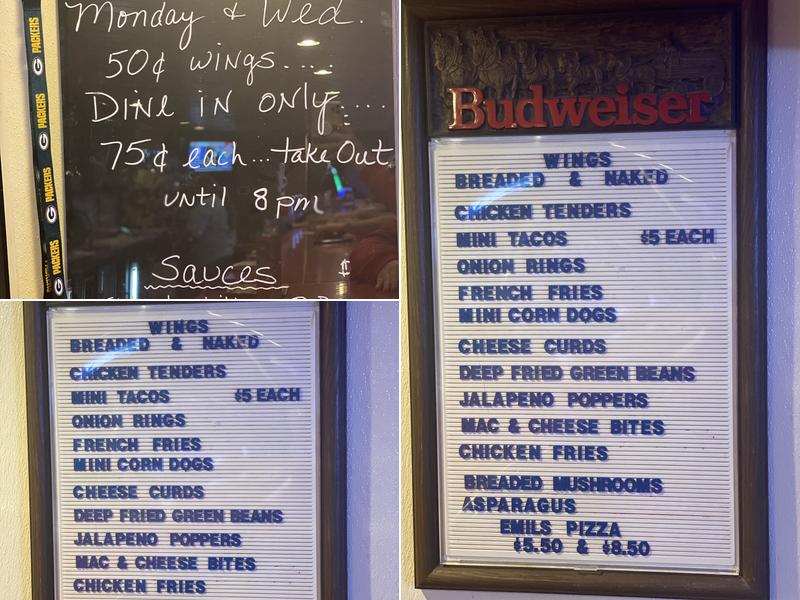 Monday & Wed.
50¢ wings....
Dine in only....
75¢ each...take Out
until 8pm
Sauces $
PACKERS
PACKERS
PACKERS
PACKERS
Budweiser
WINGS
BREADED & NAKED
CHICKEN TENDERS
MINI TACOS $5 EACH
ONION RINGS
FRENCH FRIES
MINI CORN DOGS
CHEESE CURDS
DEEP FRIED GREEN BEANS
JALAPENO POPPERS
MAC & CHEESE BITES
CHICKEN FRIES
BREADED MUSHROOMS
ASPARAGUS
EMILS PIZZA
$5.50 & $8.50
WINGS
BREADED & NAKED
CHICKEN TENDERS
MINI TACOS $5 EACH
ONION RINGS
FRENCH FRIES
MINI CORN DOGS
CHEESE CURDS
DEEP FRIED GREEN BEANS
JALAPENO POPPERS
MAC & CHEESE BITES
CHICKEN FRIES